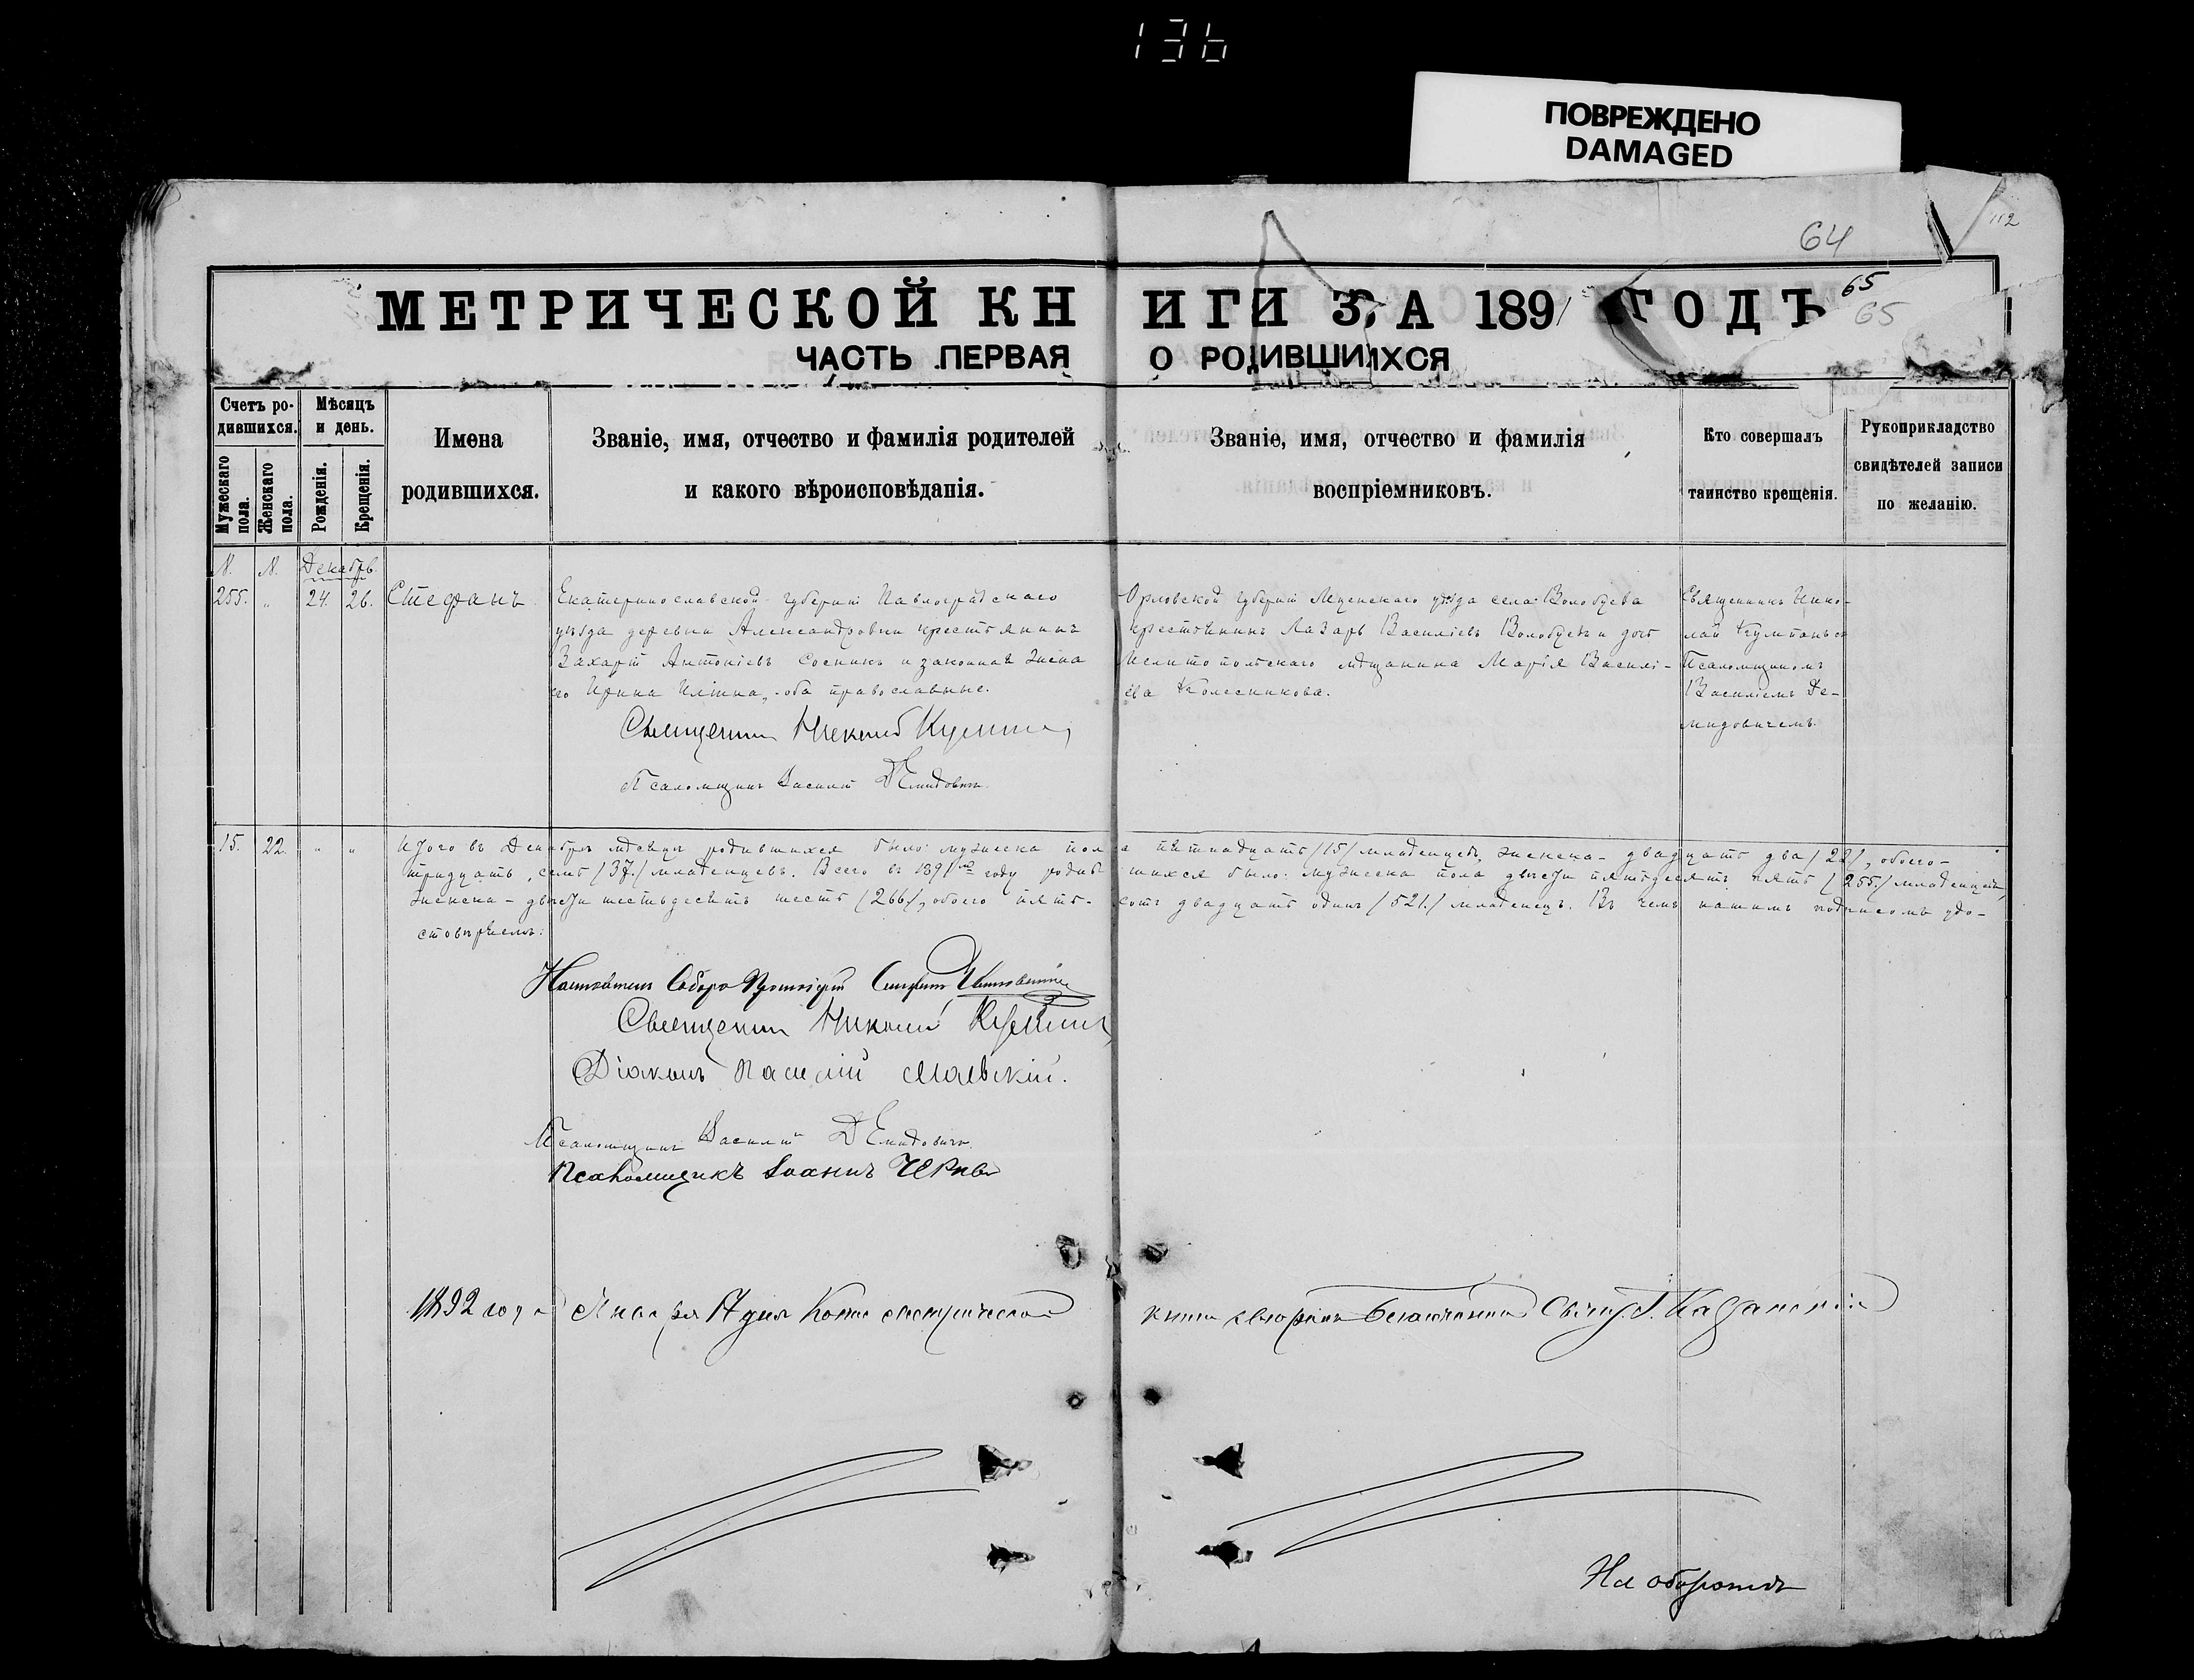 136
ПОВРЕЖДЕНО
DAMAGED
112
64
65
65
МЕТРИЧЕСКОЙ КНИГИ ЗА 1891 ГОДЪ
ЧАСТЬ ПЕРВАЯ О РОДИВШИХСЯ
Счетъ ро-
дившихся.
Мужескаго пола.
Женскаго пола.
Мѣсяцъ
и день.
Рожденія.
Крещенія.
Имена
родившихся.
Званіе, имя, отчество и фамилія родителей
и какого вѣроисповѣданія.
Званіе, имя, отчество и фамилія
воспріемниковъ.
Кто совершалъ
таинство крещенія.
Рукоприкладство
свидѣтелей записи
по желанію.
N. N. Декабрь
255. " 24. 26. Стефанъ
Екатеринославской губерніи Павлоградскаго
уѣзда деревни Александровки крестьянинъ
Захарій Антоніевъ Соснинъ и законная жена
его Ирина Ильина, оба православные.
Священникъ Николай
Псаломщикъ Василій Демидовичъ
Орловской губерніи Мценскаго уѣзда села
крестьянинъ Лазарь Василіевъ и дочь
Мелитопольскаго мѣщанина Марія Василі-
ева Колесникова.
Священникъ Нико-
лай съ
Псаломщикомъ
Василіемъ Де-
мидовичемъ.
15. 22. " " Итого въ Декабрѣ мѣсяцѣ родившихся было: мужеска пола пятнадцать /15/ младенцевъ, женска - двадцать два /22/, обоего -
тридцать семь /37/ младенцевъ. Всего въ 1891мъ году родившихся было: мужеска пола двѣсти пятьдесятъ пять /255/ младенцевъ,
женска - двѣсти шестьдесятъ шесть /266/, обоего пять- сотъ двадцать одинъ /521/ младенецъ. Въ чемъ нашимъ подписомъ удо-
стовѣряемъ:
Настоятель Собора Протоіерей
Священникъ Николай
Діаконъ Василій Маевскій.
Псаломщикъ Василій Демидовичъ
Псаломщикъ Іоаннъ
1892 года Января дня метрической
книги Свящ. Казанскій
На оборотѣ